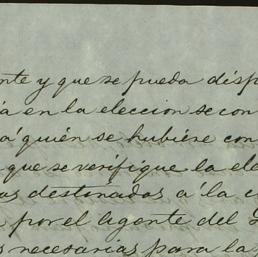 nte y que se pueda disp
ía en la eleccion se con
á quién se hubiese con
que se verifique la ele
as destinados á la c
por el Agente del
s necesarias para la